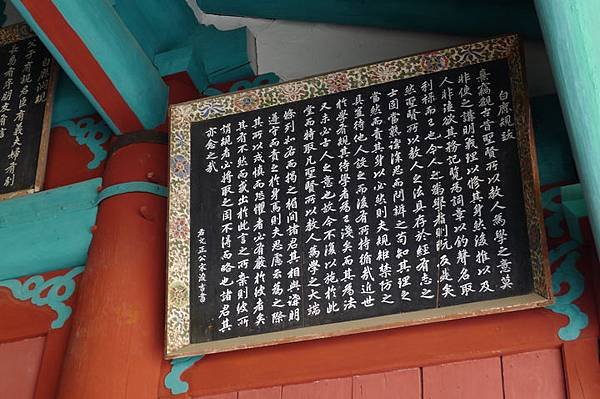 白鹿規跋
熹竊觀古昔聖賢所以教人為學之意莫
非使之講明義理以脩其身然後推以及
人非徒欲其務記覽為詞章以釣聲名取
利祿而已也今人之為學者則既反是矣
然聖賢所以教人之法具存於經有志之
士固當熟讀深思而問辨之苟知其理之
當然而責其身以必然則夫規矩禁防之
具豈待他人設之而後有所持循哉近世
於學有規其待學者為已淺矣而其為法
又未必古人之意也故今不復以施於此
堂而特取凡聖賢所以教人為學之大端
條列如右而揭之楣間諸君其相與講明
遵守而責之於身焉則夫思慮云為之際
其所以戒慎而恐懼者必有嚴於彼者矣
其有不然而或出於此言之所棄則彼所
謂規者必將取之固不得而略也諸君其
亦念之哉
右文正公宋浚吉書
白鹿洞規
父子有親君臣有義夫婦有別
長幼有序朋友有信